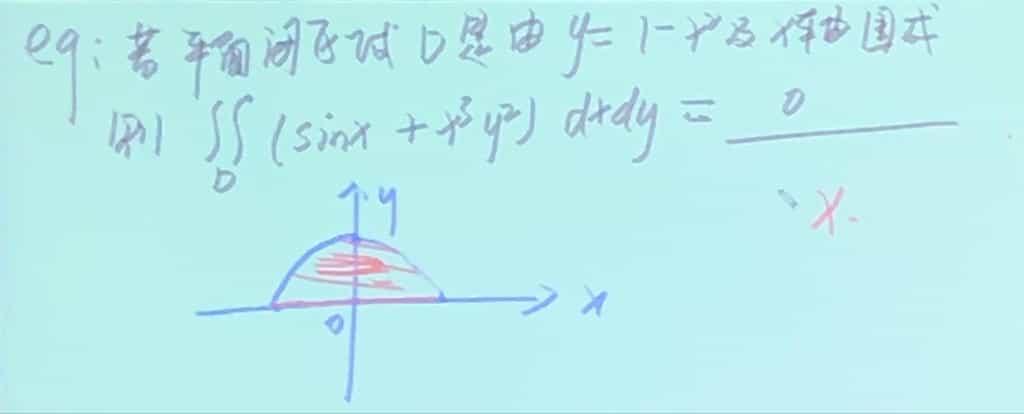 eg: 若平面闭区域 D 是由 y = 1-x² 及 x轴围成
则 ∬ (sinx + x³y²) dxdy = 0
D
y
x.
0
x